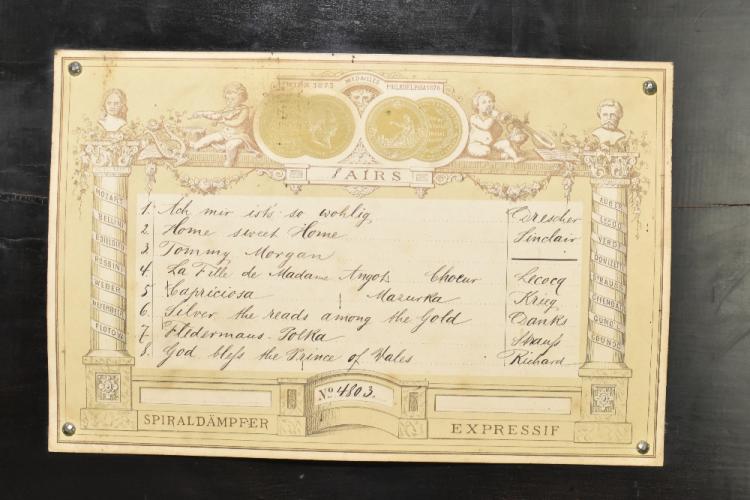 WIEN 1873 MEDAILLES PHILADELPHIA 1876
AIRS
MOZART
BELLINI
BOIELDIEU
ROSSINI
WEBER
MEYERBEER
FLOTOW
1. Ach mir ist's so wohlig Drescher
2. Home sweet Home Sinclair
3. Tommy Morgan
4. La Fille de Madame Angots Choeur Lecocq
5. Capriciosa Mazurka Krieg
6. Silver the reads among the Gold Danks
7. Fledermaus-Polka Strauss
8. God bless the Prince of Wales Richard
AUBER
LECOCQ
VERDI
DONIZETTI
STRAUSS
OFFENBACH
GUNGL
GOUNOD
No 4803.
SPIRALDÄMPFER
EXPRESSIF